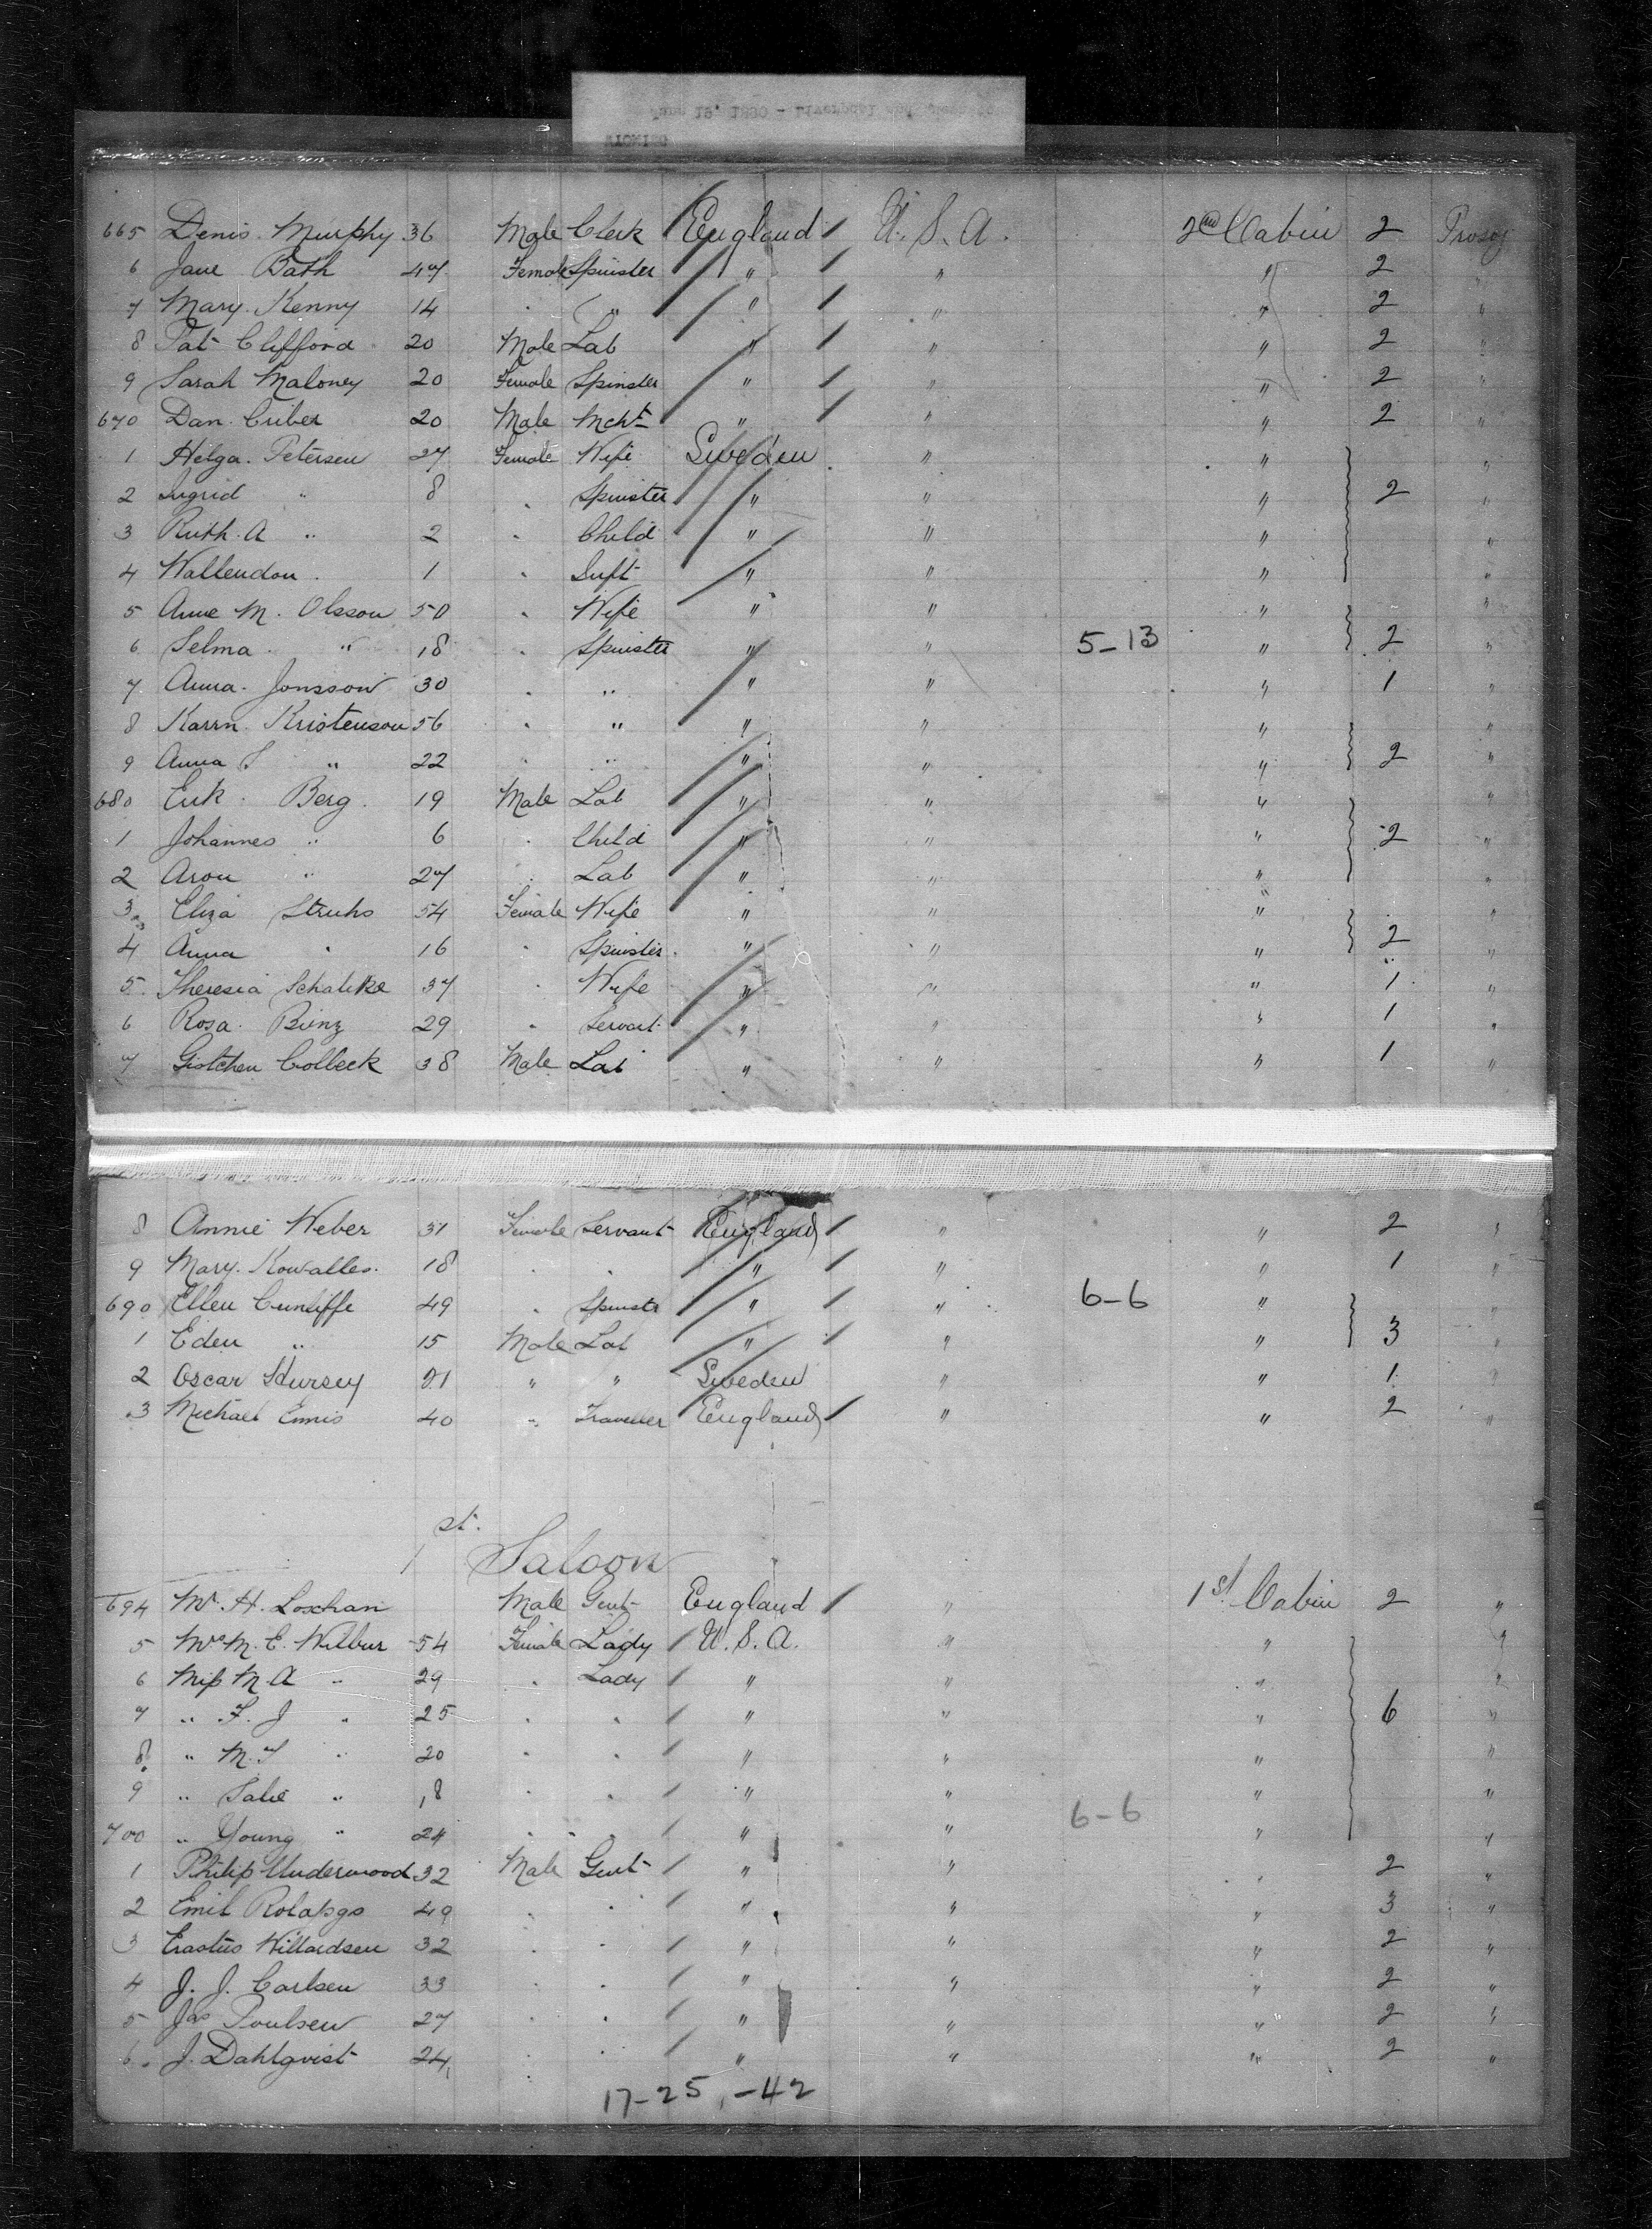 665 Denis Murphy 36 Male Clerk England U.S.A. 2nd Cabin 2
6 Jane Bath 47 Female Spinster " " " 2 "
7 Mary Kenny 14 " " " " " 2 "
8 Pat Clifford 20 Male Lab " " " 2 "
9 Sarah Maloney 20 Female Spinster " " " 2 "
670 Dan Criber 20 Male Mcht " " " 2 "
1 Helga Petersen 27 Female Wife Sweden " " "
2 Ingrid " 8 " Spinster " " " 2 "
3 Ruth A " 2 " Child " " " "
4 Wallendon 1 " Inft " " " "
5 Anne M. Olsson 50 " Wife " " " "
6 Selma " 18 " Spinster " " 5-13 " 2 "
7 Anna Jonsson 30 " " " " " 1 "
8 Karrn Kristenson 56 " " " " " "
9 Anna S " 22 " " " " " 2 "
680 Erik Berg 19 Male Lab " " " "
1 Johannes " 6 " Child " " " 2 "
2 Aron " 27 " Lab " " " "
3 Eliza Struhs 54 Female Wife " " " "
4 Anna " 16 " Spinster " " " 2 "
5 Theresia Schalike 37 " Wife " " " 1 "
6 Rosa Binz 29 " Servant " " " 1 "
7 Gistchen Colleck 38 Male Lab " " " 1 "
8 Annie Weber 31 Female Servant England " " 2 "
9 Mary Kowalles 18 " " " " " 1 "
690 Ellen Cunliffe 49 " Spinster " " 6-6 " "
1 Eden " 15 Male Lab " " " 3 "
2 Oscar Hursey 21 " " Sweden " " 1 "
3 Michael Ennis 40 " Traveller England " " 2 "
1st Saloon
694 Mr. H. Loxhan Male Gent England " 1st Cabin 2 "
5 Mrs M. E. Wilbur 54 Female Lady U.S.A. " " "
6 Miss M. A " 29 " Lady " " " "
7 " F. J " 25 " " " " " 6 "
8 " M. S " 20 " " " " " "
9 " " 18 " " " " " "
700 " Young " 24 " " " " 6-6 " "
1 Philip Underwood 32 Male Gent " " " 2 "
2 Emil 49 " " " " " 3 "
3 Erastus Willardsen 32 " " " " " 2 "
4 J. J. Carlsen 33 " " " " " 2 "
5 Jas Poulsen 27 " " " " " 2 "
6 J. Dahlqvist 24 " " " " " 2 "
17-25, -42